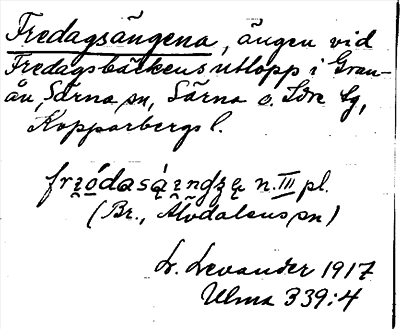 Fredagsängena, ängen vid
Fredagsbäckens utlopp i Gran-
ån, Särna sn, Särna o. Idre tg,
Kopparbergs l.
n. III pl.
(Br., Älvdalens sn)
L. Levander 1917
Ulma 339:4